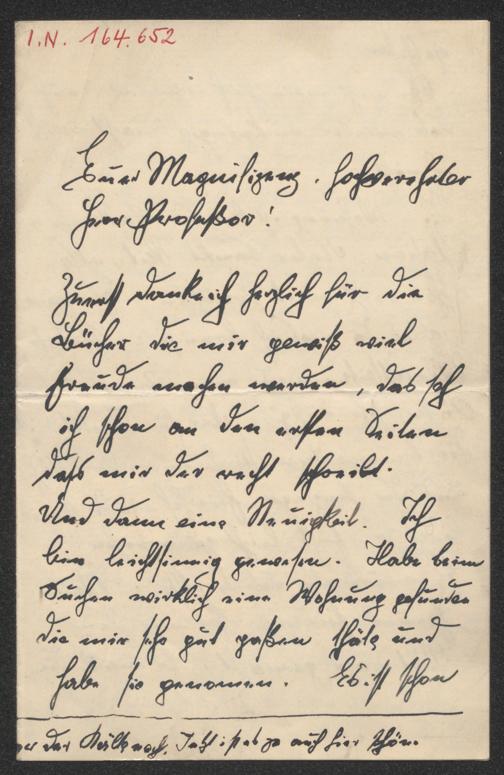 I.N. 164.652
Euer Magnifizenz, hochverehrter
Herr Profeßor!
Zuerst danke ich herzlich für die
Bücher die mir gewiß viel
Freude machen werden, das seh
ich schon an den ersten Seiten
dass mir der recht schreibt.
Und dann eine Neuigkeit. Ich
bin leichtsinnig gewesen. Habe beim
Suchen wirklich eine Wohnung gefunden
die mir sehr gut paßen thäte und
habe sie genomen. Es ist schon
der Kälte nach. Jetzt ist es ja auch hier schön.